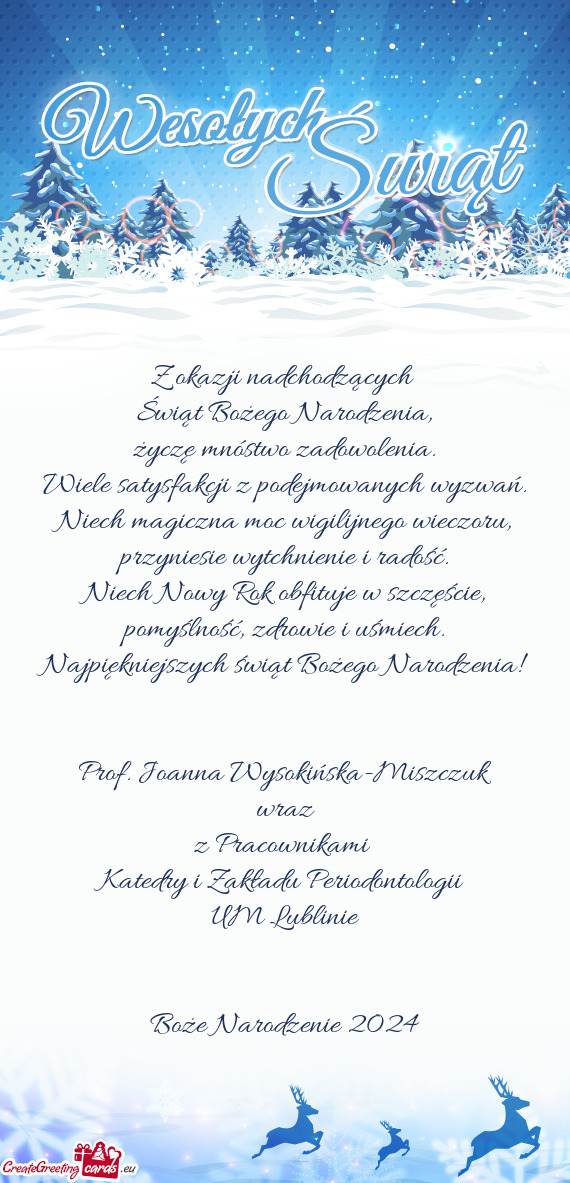 Wesołych Świąt
Z okazji nadchodzących
Świąt Bożego Narodzenia,
życzę mnóstwo zadowolenia.
Wiele satysfakcji z podejmowanych wyzwań.
Niech magiczna moc wigilijnego wieczoru,
przyniesie wytchnienie i radość.
Niech Nowy Rok obfituje w szczęście,
pomyślność, zdrowie i uśmiech.
Najpiękniejszych świąt Bożego Narodzenia!
Prof. Joanna Wysokińska-Miszczuk
wraz
z Pracownikami
Katedry i Zakładu Periodontologii
UM Lublinie
Boże Narodzenie 2024
CreateGreetingcards.eu